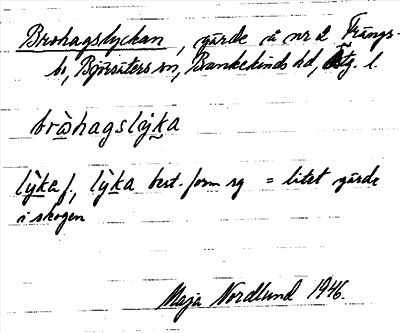 Brohagslyckan, gärde å nr 2 Frängs-
bo, Björsäters sn, Bankekinds hd, Östg. l
bròhagslýka
lýka f., lýka best. form sg = litet gärde
i skogen
Maja Nordlund 1946.